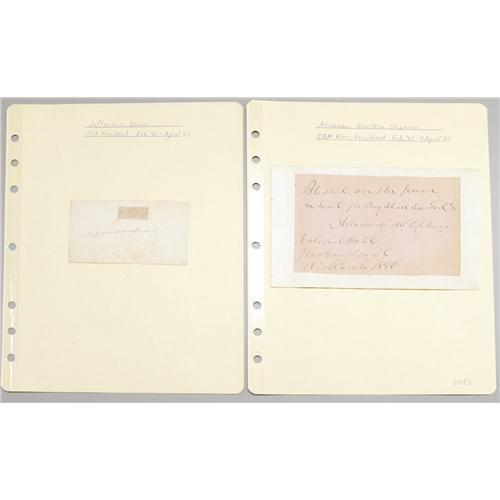 Jefferson Davis
CSA President Feb '61 - April '65
Alexander Hamilton Stephens
CSA Vice-President Feb '61 - April '65
Blessed are the pure
in heart for they shall see God
Alexander H Stephens
National Hotel
Washington D C
18 March 1880